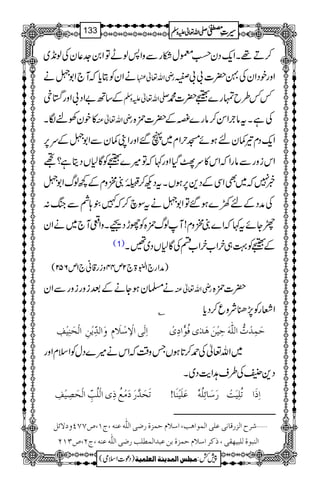 سیرتِ مصطفیٰ صلی اللہ تعالیٰ علیہ وسلم
133
کرتے تھے۔ ایک دن حسبِ معمول شکار سے واپس لوٹے تو ابن جدعان کی لونڈی
اور خود ان کی بہن بی بی صفیہ رضی اللہ تعالیٰ عنہا نے ان کو بتایا کہ آج ابوجہل نے
کس کس طرح تمہارے بھتیجے حضرت محمد صلی اللہ تعالیٰ علیہ وسلم کے ساتھ بے ادبی اور گستاخی
کی ہے۔ یہ ماجرا سن کر مارے غصہ کے حضرت حمزہ رضی اللہ تعالیٰ عنہ کا خون کھولنے لگا۔
ایک دم تیر کمان لئے ہوئے مسجد حرام میں پہنچ گئے اور اپنی کمان سے ابوجہل کے سر پر
اس زور سے مارا کہ اس کا سر پھٹ گیا اور کہا کہ تو میرے بھتیجے کو گالیاں دیتا ہے؟ تجھے
خبر نہیں کہ میں بھی اسی کے دین پر ہوں۔ یہ دیکھ کر قبیلہ بنی مخزوم کے کچھ لوگ ابوجہل
کی مدد کے لئے کھڑے ہو گئے تو ابوجہل نے یہ سوچ کر کہ کہیں بنو ہاشم سے جنگ نہ
چھڑ جائے یہ کہا کہ اے بنی مخزوم! آپ لوگ حمزہ کو چھوڑ دیجیے۔ واقعی آج میں نے ان
کے بھتیجے کو بہت ہی خراب خراب قسم کی گالیاں دی تھیں۔ (۱)
(مدارج النبوۃ ج۲ ص۴۴ وزرقانی ج۱ ص۲۵۶)
حضرت حمزہ رضی اللہ تعالیٰ عنہ نے مسلمان ہو جانے کے بعد زور زور سے ان
اشعار کو پڑھنا شروع کر دیا
حَمِدْتُ اللّٰهَ حِيْنَ هَدٰى فُؤَادِىْ اِلَى الْاِسْلَامِ وَالدِّيْنِ الْحَنِيْفِ
میں اللہ تعالیٰ کی حمد کرتا ہوں جس وقت کہ اس نے میرے دل کو اسلام اور
دین حنیف کی طرف ہدایت دی۔
اِذَا تُلِيَتْ رَسَائِلُهٗ عَلَيْنَا! تَحَدَّرَ دَمْعُ ذِى اللُّبِّ الْحَصِيْفِ
......شرح الزرقانی علی المواھب، اسلام حمزة رضی اللہ عنه ،ج۱،ص۴۷۷ودلائل
النبوة للبیھقی ، ذکر اسلام حمزة بن عبدالمطلب رضی اللہ عنه ،ج۲،ص۲۱۳
پیش کش: مجلس المدینة العلمیة (دعوتِ اسلامی)